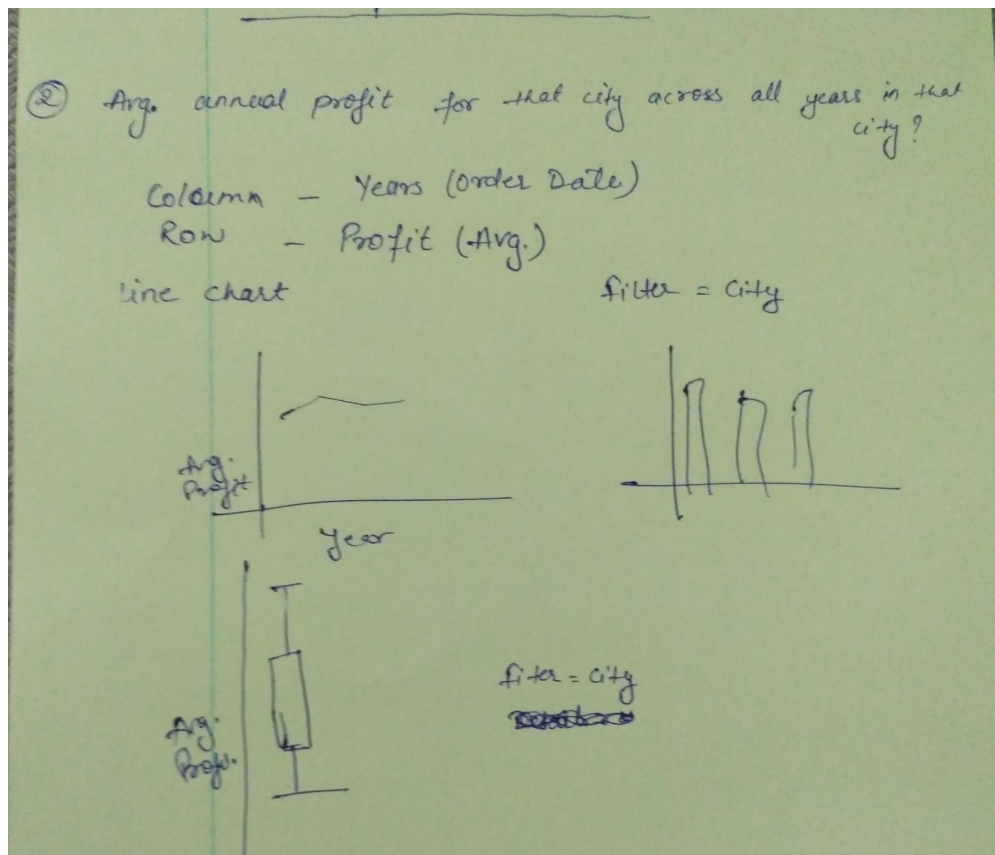 ② Avg. annual profit for that city across all years in that
city?
Column - Years (Order Date)
Row - Profit (Avg.)
Line chart
filter = City
Avg.
Profit
Year
fiter = City
Avg.